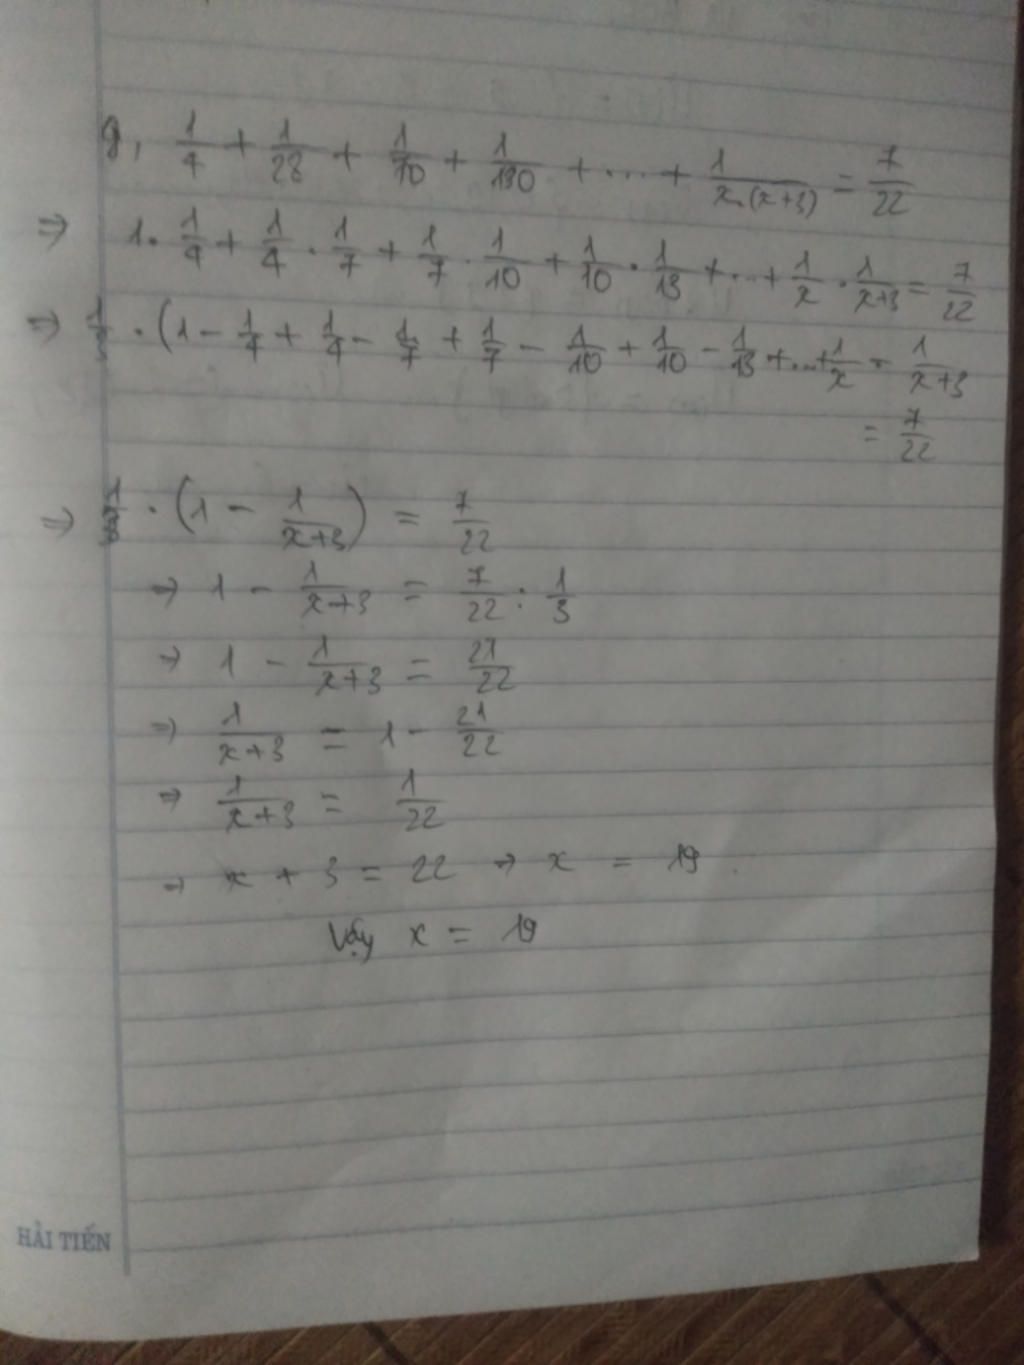 g, 1/4 + 1/28 + 1/70 + 1/130 + ... + 1/x.(x+3) = 7/22
⇒ 1 . 1/4 + 1/4 . 1/7 + 1/7 . 1/10 + 1/10 . 1/13 + ... + 1/x . 1/x+3 = 7/22
⇒ 1/3 . (1 - 1/4 + 1/4 - 1/7 + 1/7 - 1/10 + 1/10 - 1/13 + ... + 1/x - 1/x+3
= 7/22
⇒ 1/3 . (1 - 1/x+3) = 7/22
⇒ 1 - 1/x+3 = 7/22 : 1/3
⇒ 1 - 1/x+3 = 21/22
⇒ 1/x+3 = 1 - 21/22
⇒ 1/x+3 = 1/22
⇒ x + 3 = 22 ⇒ x = 19.
Vậy x = 19
HẢI TIẾN